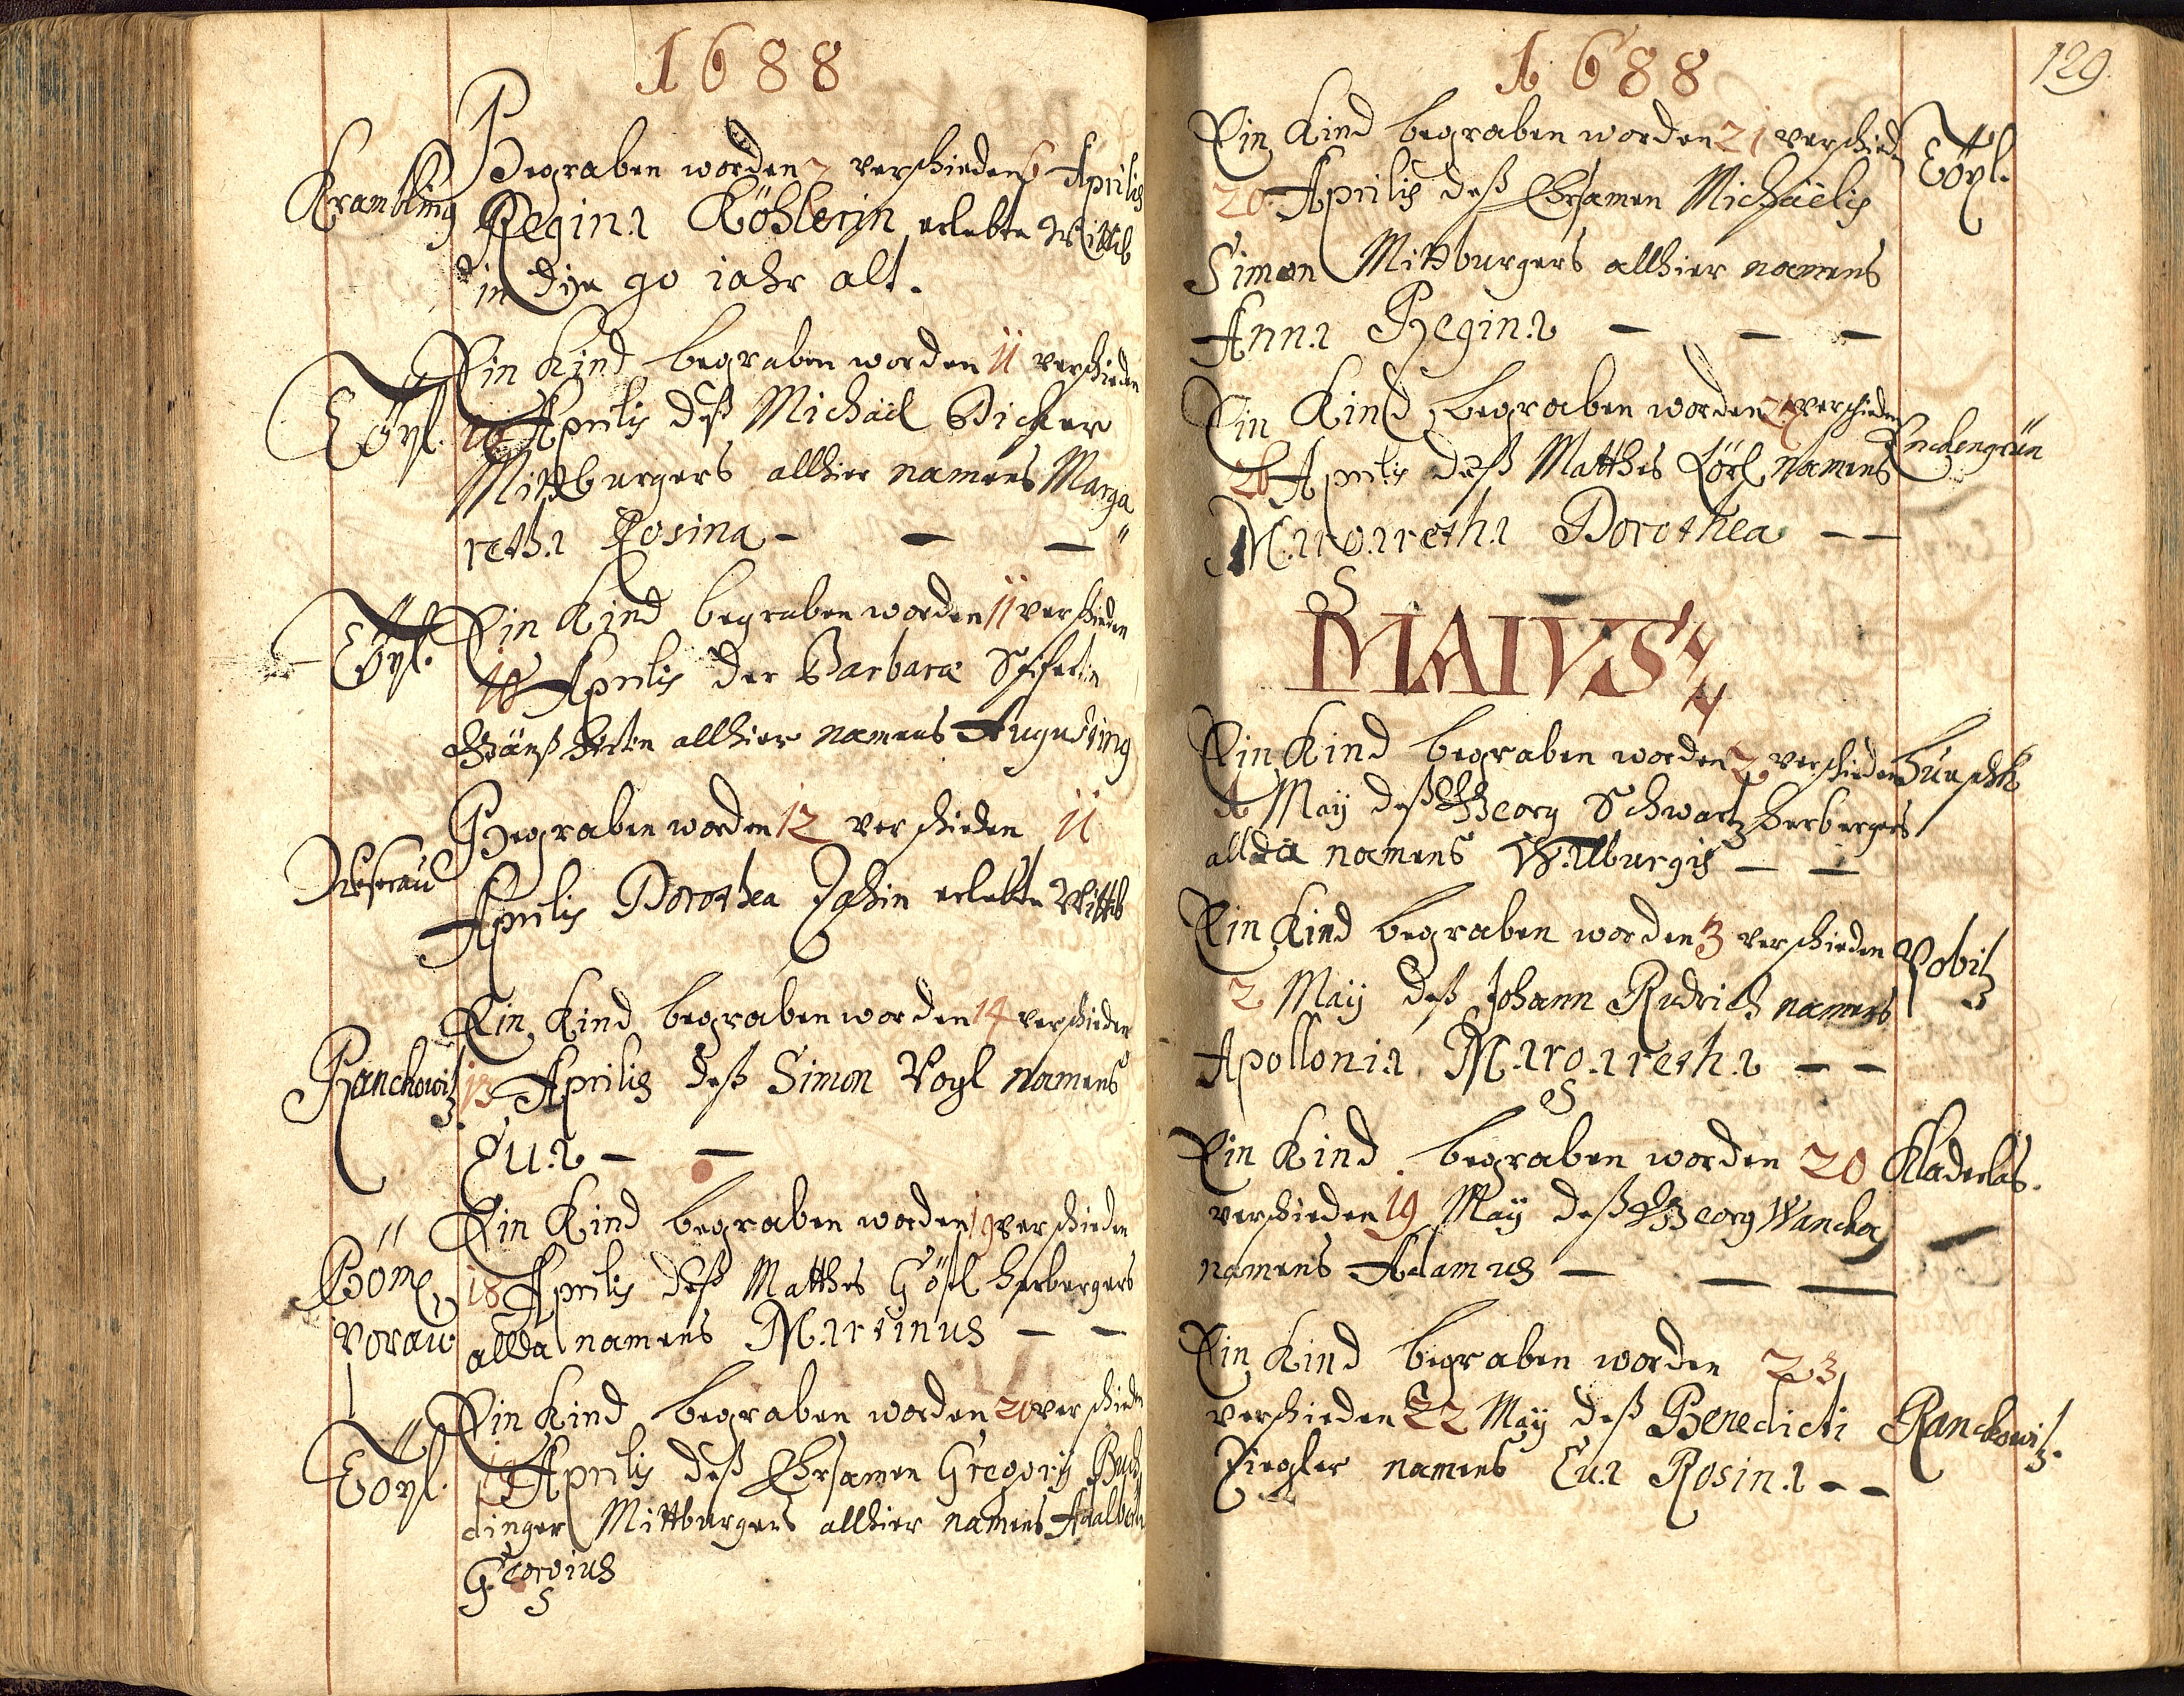 1688
Krambling
Begraben worden 7 verschieden 6 Aprilis
Regina Köhlerin erlebte Wittib
in die 90 jahr alt.
Töpl.
Ein Kind begraben worden 11 verschieden
10 Aprilis deß Michäel Dicker
Mittburgers allhier namens Marga
retha Rosina
Töpl.
Ein Kind begraben worden 11 verschieden
10 Aprilis der Barbara
allhier namens
Begraben worden 12 verschieden 11
Aprilis Dorothea erlebte Wittib
Ranckowitz.
Ein Kind begraben worden 14 verschieden
13 Aprilis deß Simon Vogl namens
Eua
Böm
Worau
Ein Kind begraben worden 19 verschieden
18 Aprilis deß Matthes Gößl herbergers
allda namens Martinus
Töpl.
Ein Kind begraben worden 20 verschieden
19 Aprilis deß Ehrsamen Gregorij
dinger Mittburgers allhier namens
Georgius
129.
1688
Ein Kind begraben worden 21 verschieden
Töpl.
20 Aprilis deß Ehrsamen Michäelis
Simon Mittburgers allhier namens
Anna Regina
Ein Kind begraben worden 27 verschieden
26 Aprilis deß Matthes namens
Margaretha Dorothea
MAIVS
Ein Kind begraben worden 2 verschieden
1 Maÿ deß Georg Schwartz herbergers
allda namens Wallburgis
Ein Kind begraben worden 3 verschieden
Pobitz
2 Maÿ deß Johann Rudrich namens
Apollonia Margaretha
Ein Kind begraben worden 20
Kladerlas.
verschieden 19 Maÿ deß Georg Wancka
namens Adamus
Ein Kind begraben worden 23
verschieden 22 Maÿ deß Benedicti
Ranckowitz.
Ziegler namens Eua Rosina